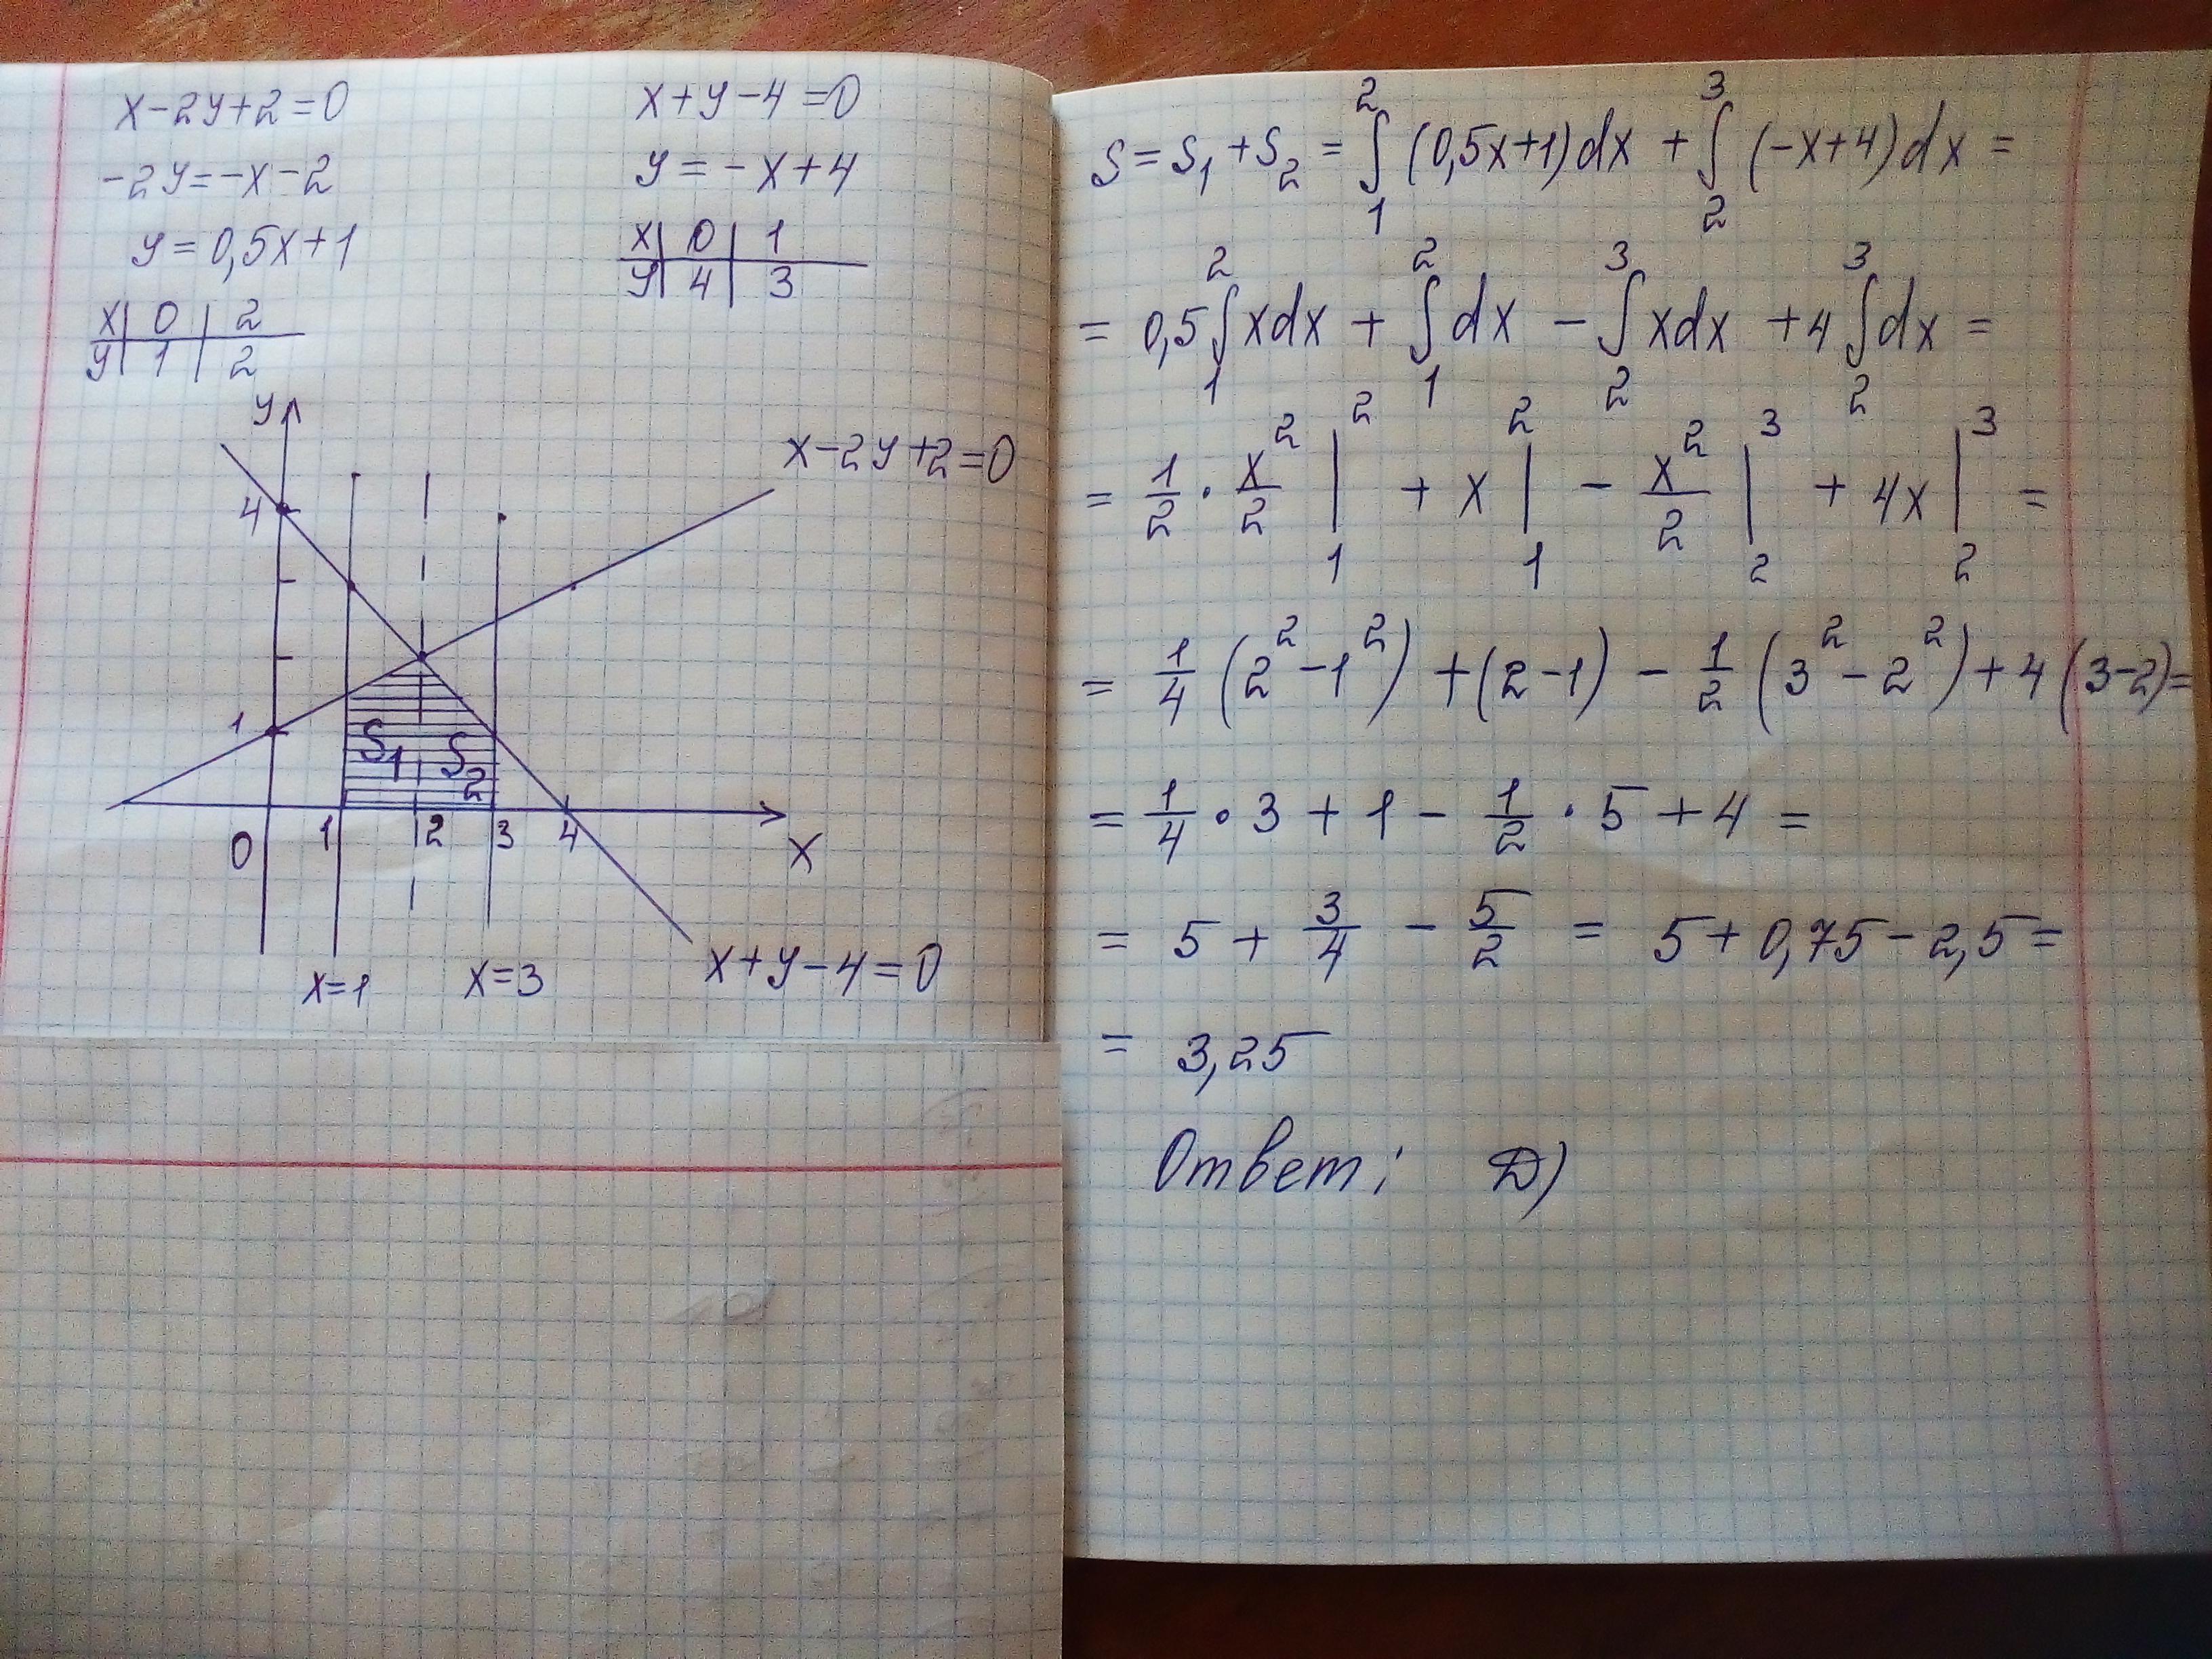 x-2y+2=0
-2y=-x-2
y=0,5x+1
x | 0 | 2
y | 1 | 2
x+y-4=0
y=-x+4
x | 0 | 1
y | 4 | 3
y
x-2y+2=0
4
1
S₁ S₂
0 1 2 3 4 x
x=1 x=3 x+y-4=0
S=S₁+S₂=∫₁²(0,5x+1)dx+∫₂³(-x+4)dx=
=0,5∫₁²xdx+∫₁²dx-∫₂³xdx+4∫₂³dx=
=1/2·x²/2|₁²+x|₁²-x²/2|₂³+4x|₂³=
=1/4(2²-1²)+(2-1)-1/2(3²-2²)+4(3-2)=
=1/4·3+1-1/2·5+4=
=5+3/4-5/2=5+0,75-2,5=
=3,25
Ответ: D)